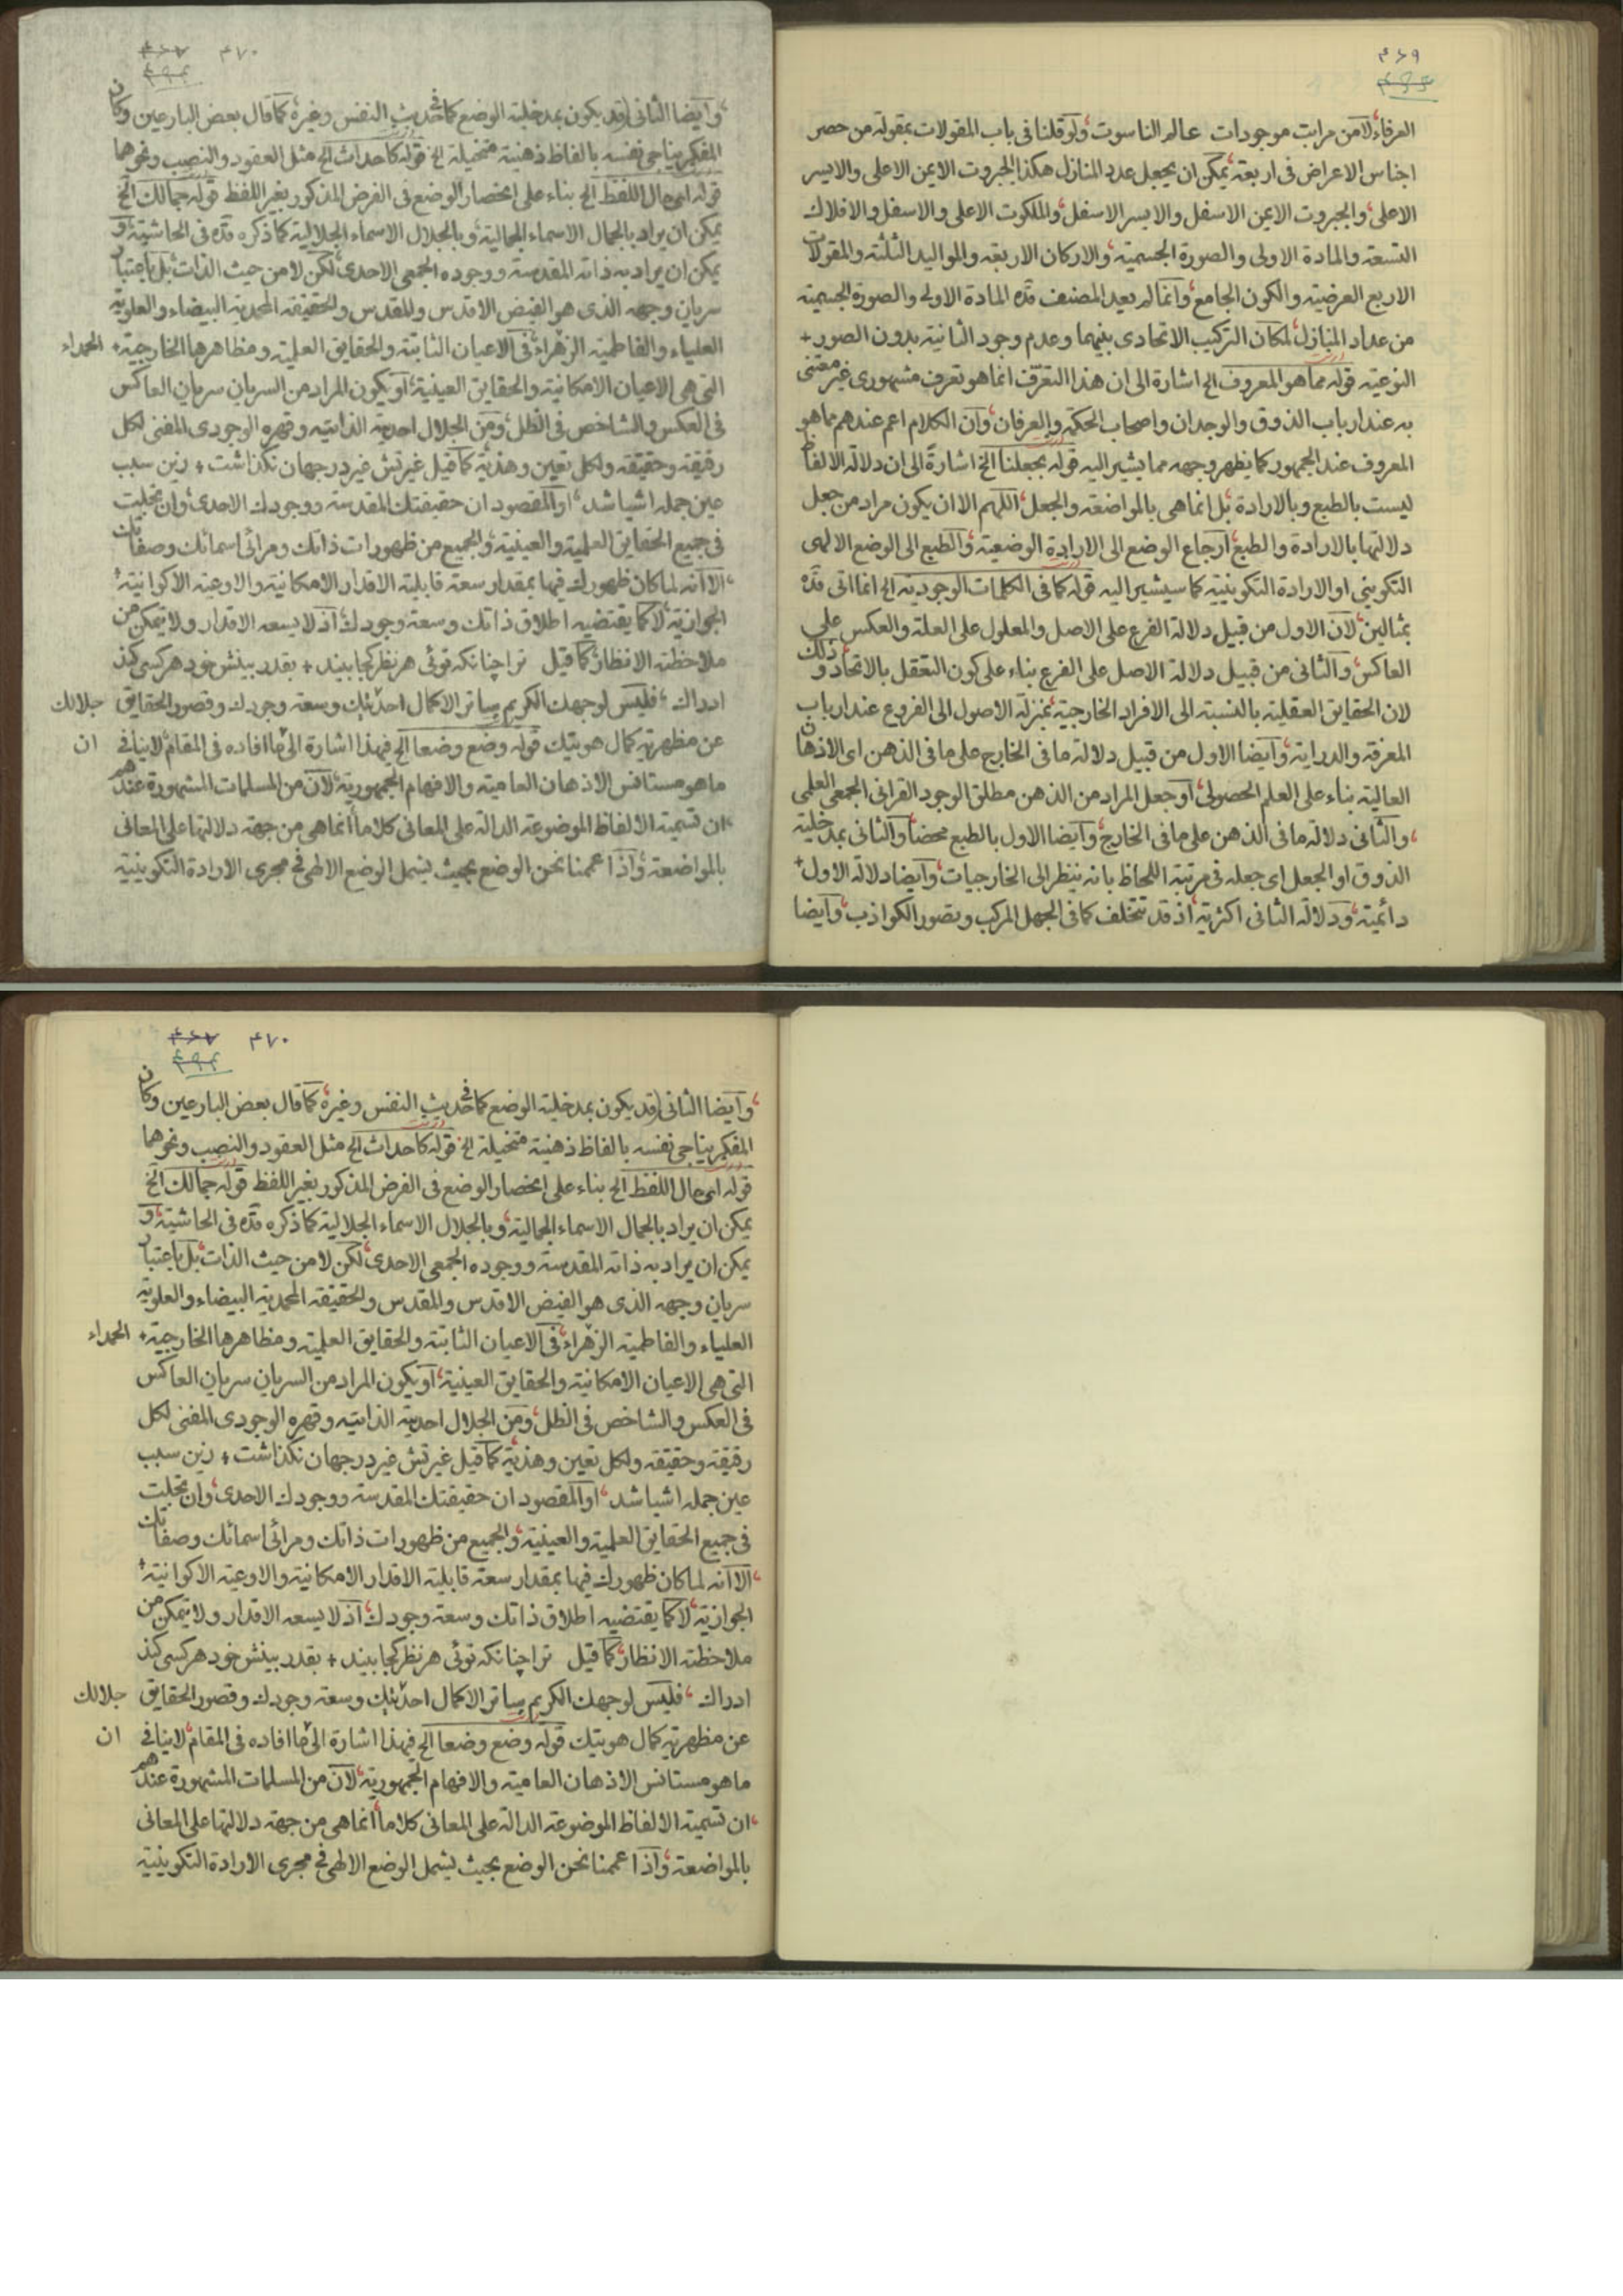 ۴۶۹
العرفاء لا من مراتب موجودات عالم الناسوت ولو قلنا فی باب المقولات بمقولة من حصر
اجناس الاعراض فی اربعة یمکن ان یجعل عدد المنازل هکذا الجبروت الایمن الاعلی والایسر
الاعلی والجبروت الایمن الاسفل والایسر الاسفل والملکوت الاعلی والاسفل والافلاك
التسعة والمادة الاولی والصورة الجسمیة والارکان الاربعة والموالید الثلثة والمقولات
الاربع العرضیة والکون الجامع وانما لم یعد المصنف قده المادة الاولی والصورة الجسمیة
من عداد المنازل لمکان الترکیب الاتحادی بینهما وعدم وجود الثانیة بدون الصور +
النوعیة قوله مما هو المعروف الخ اشارة الی ان هذا التعرف انما هو تعرف مشهوری غیر معتنی
به عند ارباب الذوق والوجدان واصحاب الحکمة والعرفان وان الکلام اعم عندهم مما هو
المعروف عند الجمهور کما یظهر وجهه مما یشیر الیه قوله بجعلنا الخ اشارةً الی ان دلالة الالفاظ
لیست بالطبع وبالارادة بل انما هی بالمواضعة والجعل اللهم الا ان یکون مراد من جعل
دلالتها بالارادة والطبع ارجاع الوضع الی الارادة الوضعیة والطبع الی الوضع الالهی
التکوینی او الارادة التکوینیة کما سیشیر الیه قوله کما فی الکلمات الوجودیة الخ انما اتی قده
بمثالین لان الاول من قبیل دلالة الفرع علی الاصل والمعلول علی العلة والعکس علی
العاکس والثانی من قبیل دلالة الاصل علی الفرع بناء علی کون التعقل بالاتحاد و ذلك
لان الحقایق العقلیة بالنسبة الی الافراد الخارجیة بمنزلة الاصول الی الفروع عند ارباب
المعرفة والدرایة وایضا الاول من قبیل دلالة ما فی الخارج علی ما فی الذهن ای الاذهان
العالیة بناء علی العلم الحصولی او جعل المراد من الذهن مطلق الوجود القرانی الجمعی العلمی
والثانی دلالة ما فی الذهن علی ما فی الخارج وایضا الاول بالطبع محضا والثانی بمدخلیة
الذوق او الجعل ای جعله فی مرتبة اللحاظ بانه ینظر الی الخارجیات وایضا دلالة الاول +
دائمیة ودلالة الثانی اکثریة اذ قد تتخلف کما فی الجهل المرکب وتصور الکواذب وایضا
۴۷۰
وایضا الثانی قد یکون بمدخلیة الوضع کما فی حدیث النفس وغیره کما قال بعض البارعین وکان
المفکر یناجی نفسه بالفاظ ذهنیة متخیلة الخ قوله کاحداث الخ مثل العقود والنصب ونحوهما
قوله ای حال اللفظ الخ بناء علی انحصار الوضع فی الفرض المذکور بغیر اللفظ قوله جمالك الخ
یمکن ان یراد بالجمال الاسماء الجمالیة وبالجلال الاسماء الجلالیة کما ذکره قده فی الحاشیة و
یمکن ان یراد به ذاته المقدسة ووجوده الجمعی الاحدی لکن لا من حیث الذات بل باعتبار
سریان وجهه الذی هو الفیض الاقدس والمقدس والحقیقة المحمدیة البیضاء والعلویة
العلیاء والفاطمیة الزهراء فی الاعیان الثابتة والحقایق العلمیة ومظاهرها الخارجیة + الحمراء
التی هی الاعیان الامکانیة والحقایق العینیة او یکون المراد من السریان سریان العاکس
فی العکس والشاخص فی الظل ومن الجلال احدیة الذاتیة وقهره الوجودی المفنی لکل
رقیقة وحقیقة ولکل تعین وهذیة کما قیل غیرتش غیر در جهان نگذاشت + زین سبب
عین جمله اشیا شد او المقصود ان حقیقتك المقدسة ووجودك الاحدی وان تجلیت
فی جمیع الحقایق العلمیة والعینیة والجمیع من ظهورات ذاتك ومرائی اسمائك وصفاتك
الا انه لما کان ظهورك فیها بمقدار سعة قابلیة الاقدار الامکانیة والاوعیة الاکوانیة +
الجوازیة لا کما یقتضیه اطلاق ذاتك وسعة وجودك اذ لا یسعه الاقدار ولا یتمکن من
ملاحظته الانظار کما قیل ترا چنانکه توئی هر نظر کجا بیند + بقدر بینش خود هر کسی کند
ادراك فلیس لوجهك الکریم ساتر الا کمال احدیتك وسعة وجودك وقصور الحقایق جلالك
عن مظهریة کمال هویتك قوله وضع وضعا الخ فهذا اشارة الی ما افاده فی المقام لا ینافی ان
ما هو مستانس الاذهان العامیة والافهام الجمهوریة لان من المسلمات المشهورة عندهم
ان تسمیة الالفاظ الموضوعة الدالة علی المعانی کلاما انما هی من جهة دلالتها علی المعانی
بالمواضعة واذا عممنا نحن الوضع بحیث یشمل الوضع الالهی فی مجری الارادة التکوینیة
۴۷۰
وایضا الثانی قد یکون بمدخلیة الوضع کما فی حدیث النفس وغیره کما قال بعض البارعین وکان
المفکر یناجی نفسه بالفاظ ذهنیة متخیلة الخ قوله کاحداث الخ مثل العقود والنصب ونحوهما
قوله ای حال اللفظ الخ بناء علی انحصار الوضع فی الفرض المذکور بغیر اللفظ قوله جمالك الخ
یمکن ان یراد بالجمال الاسماء الجمالیة وبالجلال الاسماء الجلالیة کما ذکره قده فی الحاشیة و
یمکن ان یراد به ذاته المقدسة ووجوده الجمعی الاحدی لکن لا من حیث الذات بل باعتبار
سریان وجهه الذی هو الفیض الاقدس والمقدس والحقیقة المحمدیة البیضاء والعلویة
العلیاء والفاطمیة الزهراء فی الاعیان الثابتة والحقایق العلمیة ومظاهرها الخارجیة + الحمراء
التی هی الاعیان الامکانیة والحقایق العینیة او یکون المراد من السریان سریان العاکس
فی العکس والشاخص فی الظل ومن الجلال احدیة الذاتیة وقهره الوجودی المفنی لکل
رقیقة وحقیقة ولکل تعین وهذیة کما قیل غیرتش غیر در جهان نگذاشت + زین سبب
عین جمله اشیا شد او المقصود ان حقیقتك المقدسة ووجودك الاحدی وان تجلیت
فی جمیع الحقایق العلمیة والعینیة والجمیع من ظهورات ذاتك ومرائی اسمائك وصفاتك
الا انه لما کان ظهورك فیها بمقدار سعة قابلیة الاقدار الامکانیة والاوعیة الاکوانیة +
الجوازیة لا کما یقتضیه اطلاق ذاتك وسعة وجودك اذ لا یسعه الاقدار ولا یتمکن من
ملاحظته الانظار کما قیل ترا چنانکه توئی هر نظر کجا بیند + بقدر بینش خود هر کسی کند
ادراك فلیس لوجهك الکریم ساتر الا کمال احدیتك وسعة وجودك وقصور الحقایق جلالك
عن مظهریة کمال هویتك قوله وضع وضعا الخ فهذا اشارة الی ما افاده فی المقام لا ینافی ان
ما هو مستانس الاذهان العامیة والافهام الجمهوریة لان من المسلمات المشهورة عندهم
ان تسمیة الالفاظ الموضوعة الدالة علی المعانی کلاما انما هی من جهة دلالتها علی المعانی
بالمواضعة واذا عممنا نحن الوضع بحیث یشمل الوضع الالهی فی مجری الارادة التکوینیة